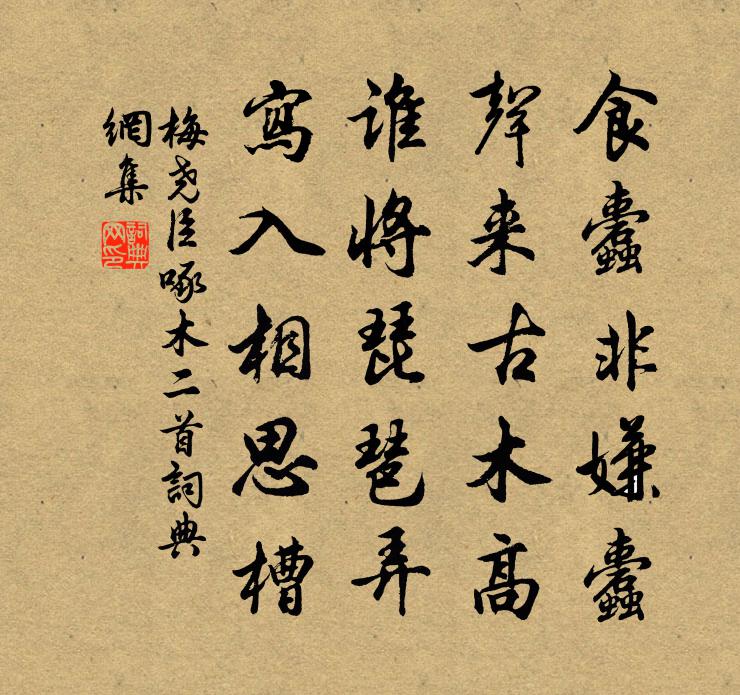 食蠹非嫌蠹
聲来古木高
誰將琵琶弄
寫入相思槽
梅尧臣啄木二首詞典
網集
詞典
网印